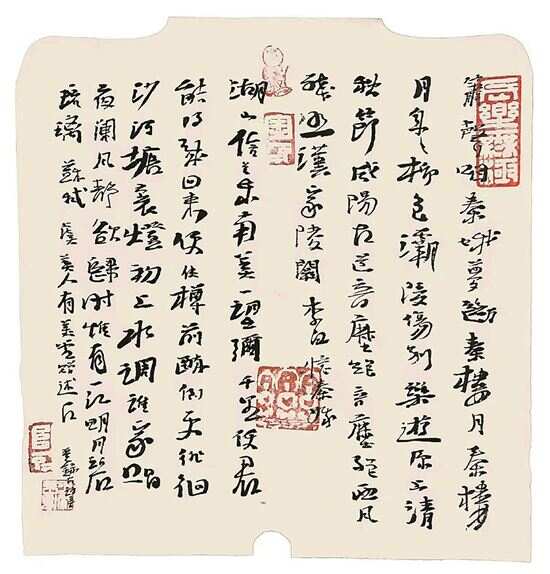 簫聲咽秦娥夢斷秦樓月秦樓
月年々柳色灞陵傷別樂遊原上清
秋節咸陽古道音塵絕音塵絕西風
殘照漢家陵闕 李白憶秦娥
湖山信是東南美一望彌千里使君
能得幾回來便使樽前醉倒更徘徊
沙河塘裏燈初上水調誰家唱
夜闌風靜欲歸時惟有一江明月碧
琉璃 蘇軾 虞美人有美堂贈述古